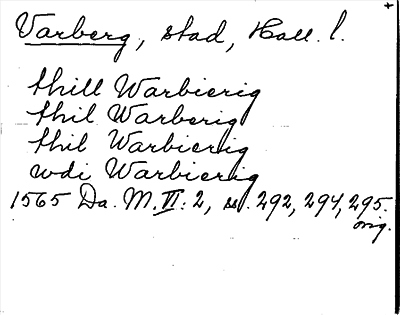 Varberg, stad, Hall. l.
thill Warbierig
thil Warberig
thil Warbierig
wdi Warbierig
1565 Da. M. VI: 2, ss. 292, 294, 295.
orig.